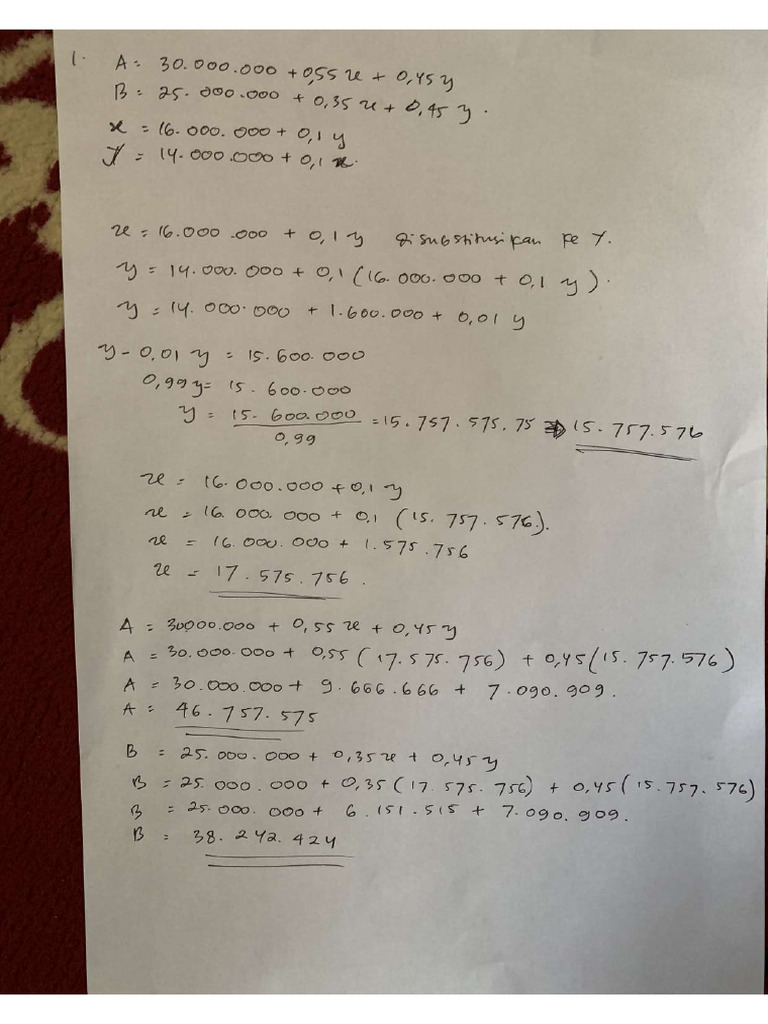 1. A = 30.000.000 + 0,55 x + 0,45 y
B = 25.000.000 + 0,35 x + 0,45 y.
x = 16.000.000 + 0,1 y
Y = 14.000.000 + 0,1 x.
x = 16.000.000 + 0,1 y disubstitusikan ke Y.
y = 14.000.000 + 0,1 (16.000.000 + 0,1 y).
y = 14.000.000 + 1.600.000 + 0,01 y
y - 0,01 y = 15.600.000
0,99 y = 15.600.000
y = 15.600.000 / 0,99 = 15.757.575,75 ⇒ 15.757.576
x = 16.000.000 + 0,1 y
x = 16.000.000 + 0,1 (15.757.576).
x = 16.000.000 + 1.575.756
x = 17.575.756.
A = 30000.000 + 0,55 x + 0,45 y
A = 30.000.000 + 0,55 (17.575.756) + 0,45 (15.757.576)
A = 30.000.000 + 9.666.666 + 7.090.909.
A = 46.757.575
B = 25.000.000 + 0,35 x + 0,45 y
B = 25.000.000 + 0,35 (17.575.756) + 0,45 (15.757.576)
B = 25.000.000 + 6.151.515 + 7.090.909.
B = 38.242.424